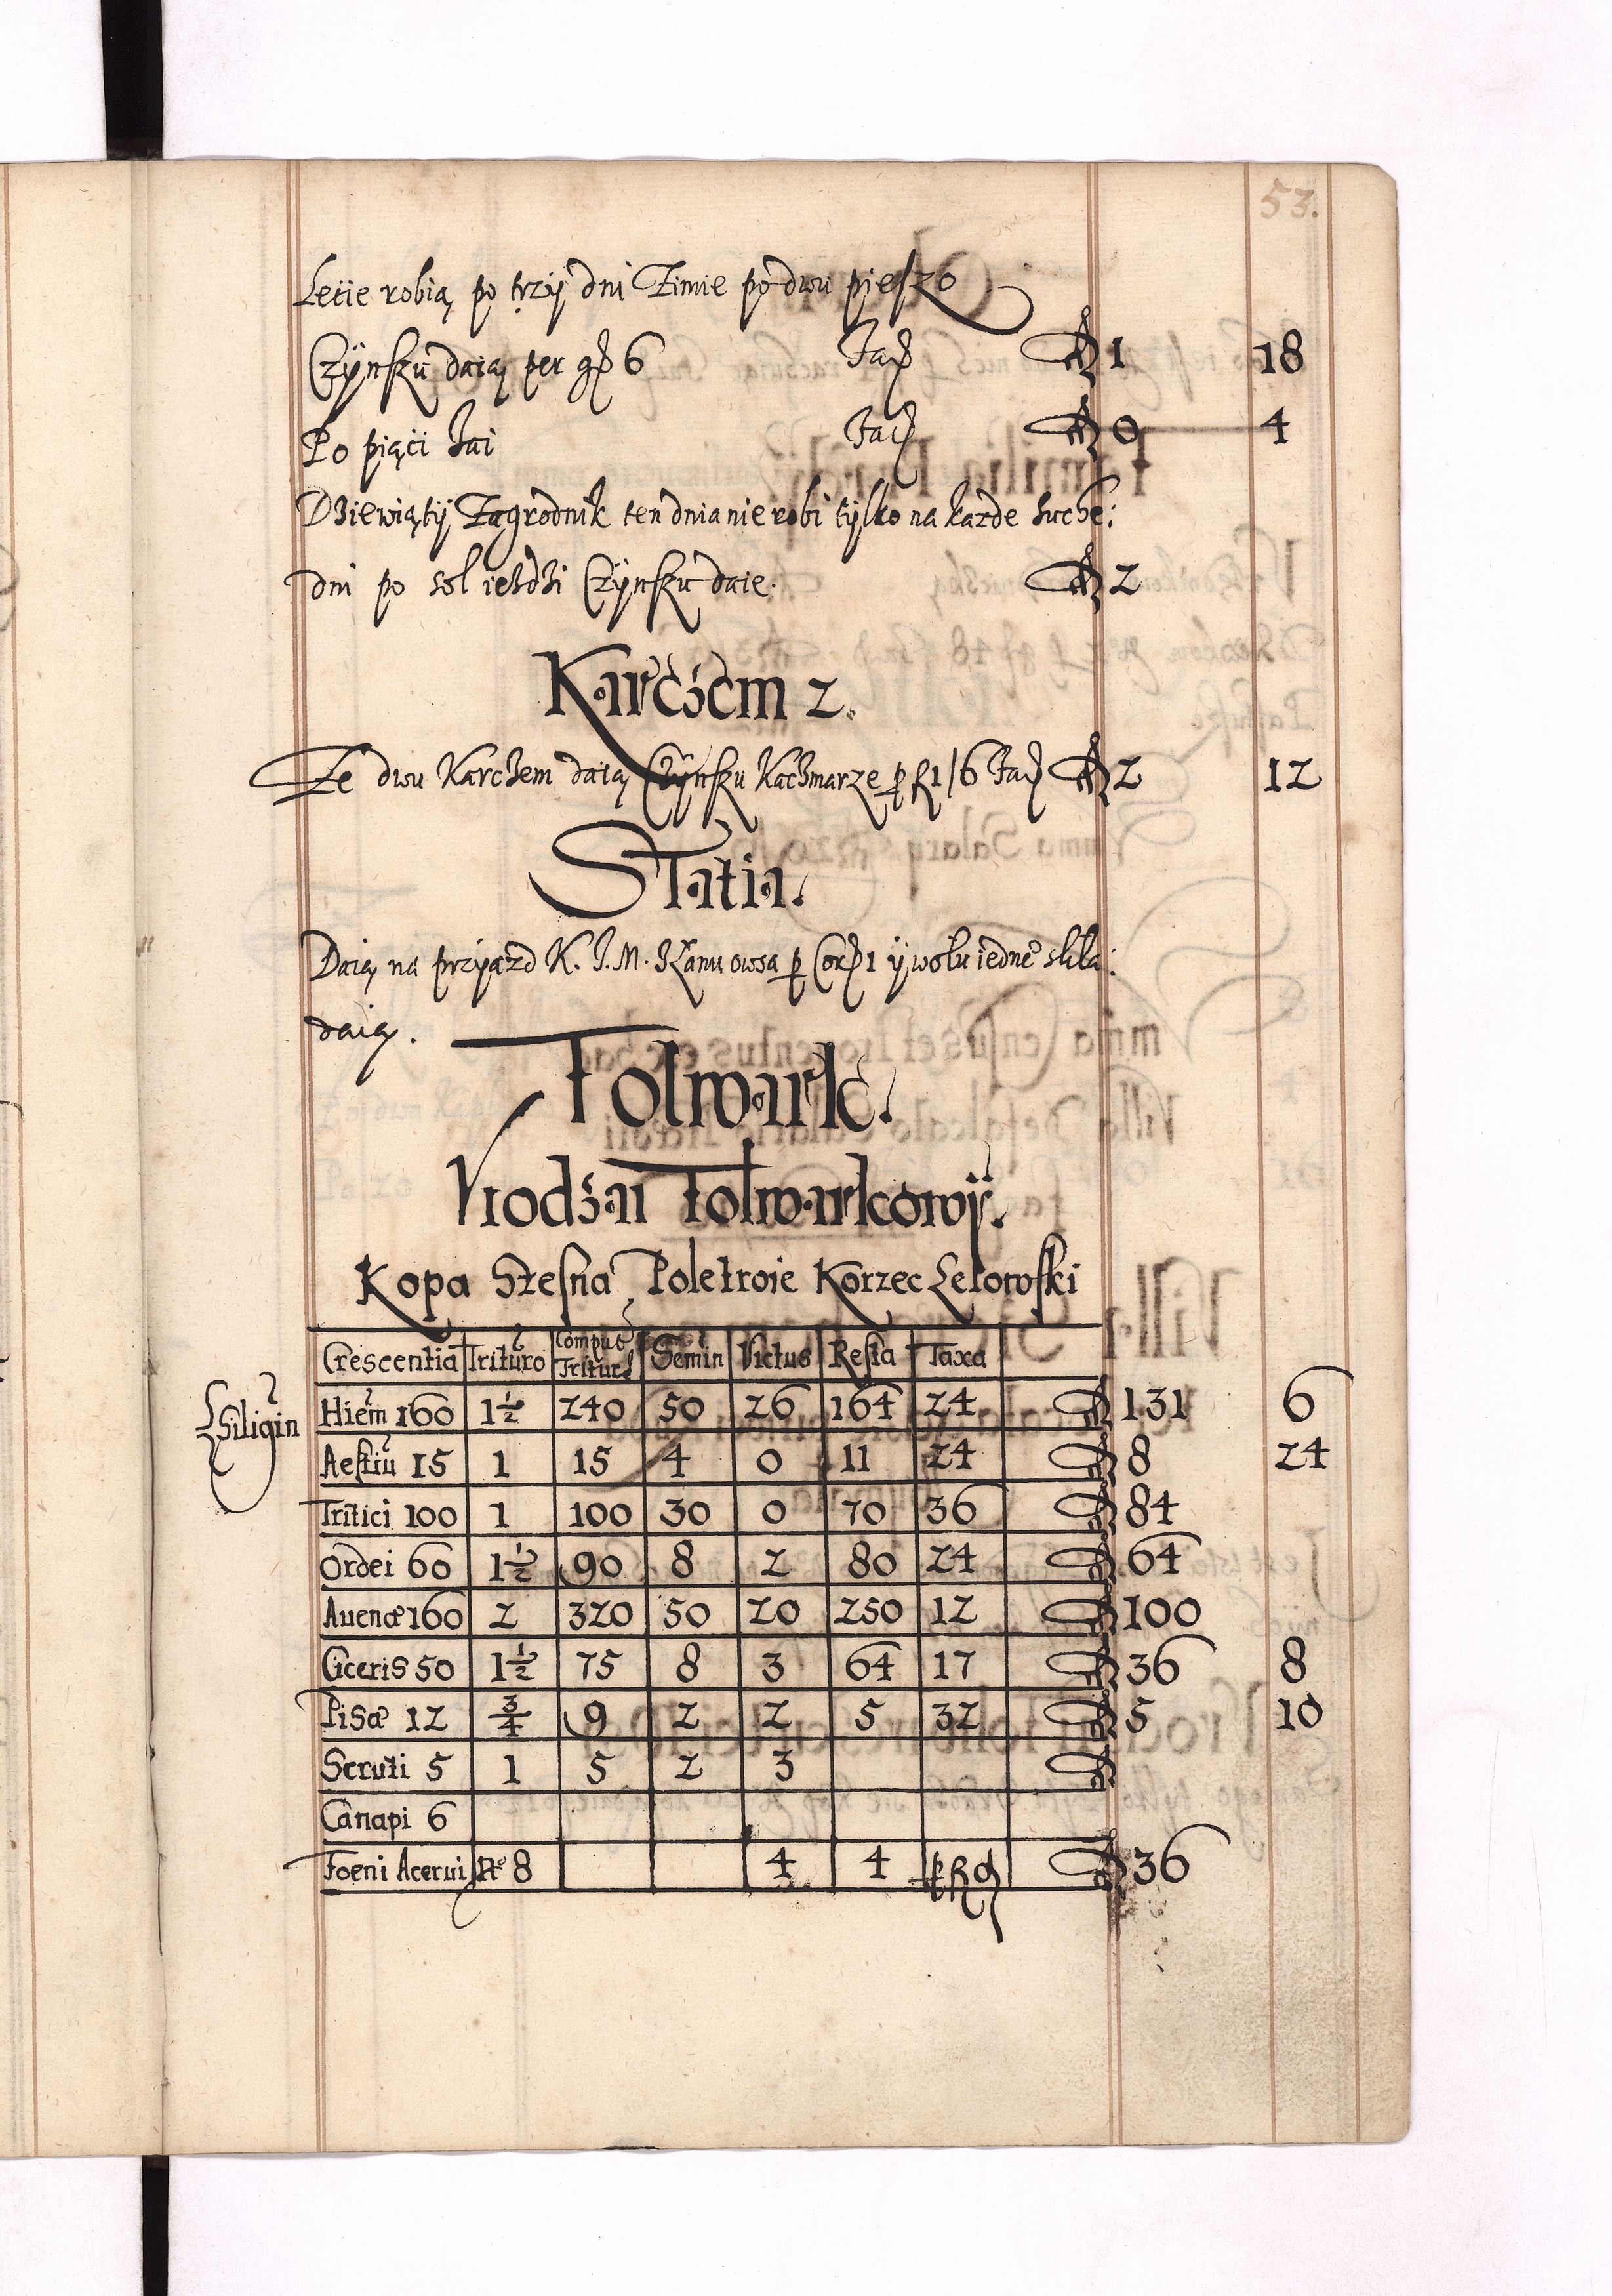 53.
Lecie robią po trzy dni Zimie po dwu pieszo
Czÿnszu daią per gr 6 fac fl 1 18
Po piąci Jai fac fl 0 4
Dziewiątÿ Zagrodnik ten dnia nie robi tÿlko na każde suche:
dni po sol iezdzi Czÿnszu daie. fl 2
Karczem 2.
Ze dwu Karczem daią Czÿnszu Kaczmarze p fl 1/6 fac fl 2 12
Statia.
Daią na przyazd K. J. M. Stanu owsa p Cor 1 ÿ wołu iedneo skła:
daią.
Folwark.
Vrodzai Folwarkowÿ.
Kopa Szesna, Poletroie Korzec Lelowski
Crescentia Trituro Comput Triturae Semin Victus Resta Taxa
Siligin Hiem 160 1½ 240 50 26 164 24 fl 131 6
Aestiu 15 1 15 4 0 11 24 fl 8 24
Tritici 100 1 100 30 0 70 36 fl 84
Ordei 60 1½ 90 8 2 80 24 fl 64
Auenæ 160 2 320 50 20 250 12 fl 100
Ciceris 50 1½ 75 8 3 64 17 fl 36 8
Pisæ 12 ¾ 9 2 2 5 32 fl 5 10
Scruti 5 1 5 2 3 fl
Canapi 6
Foeni Acerui No 8 4 4 p fl 9 fl 36